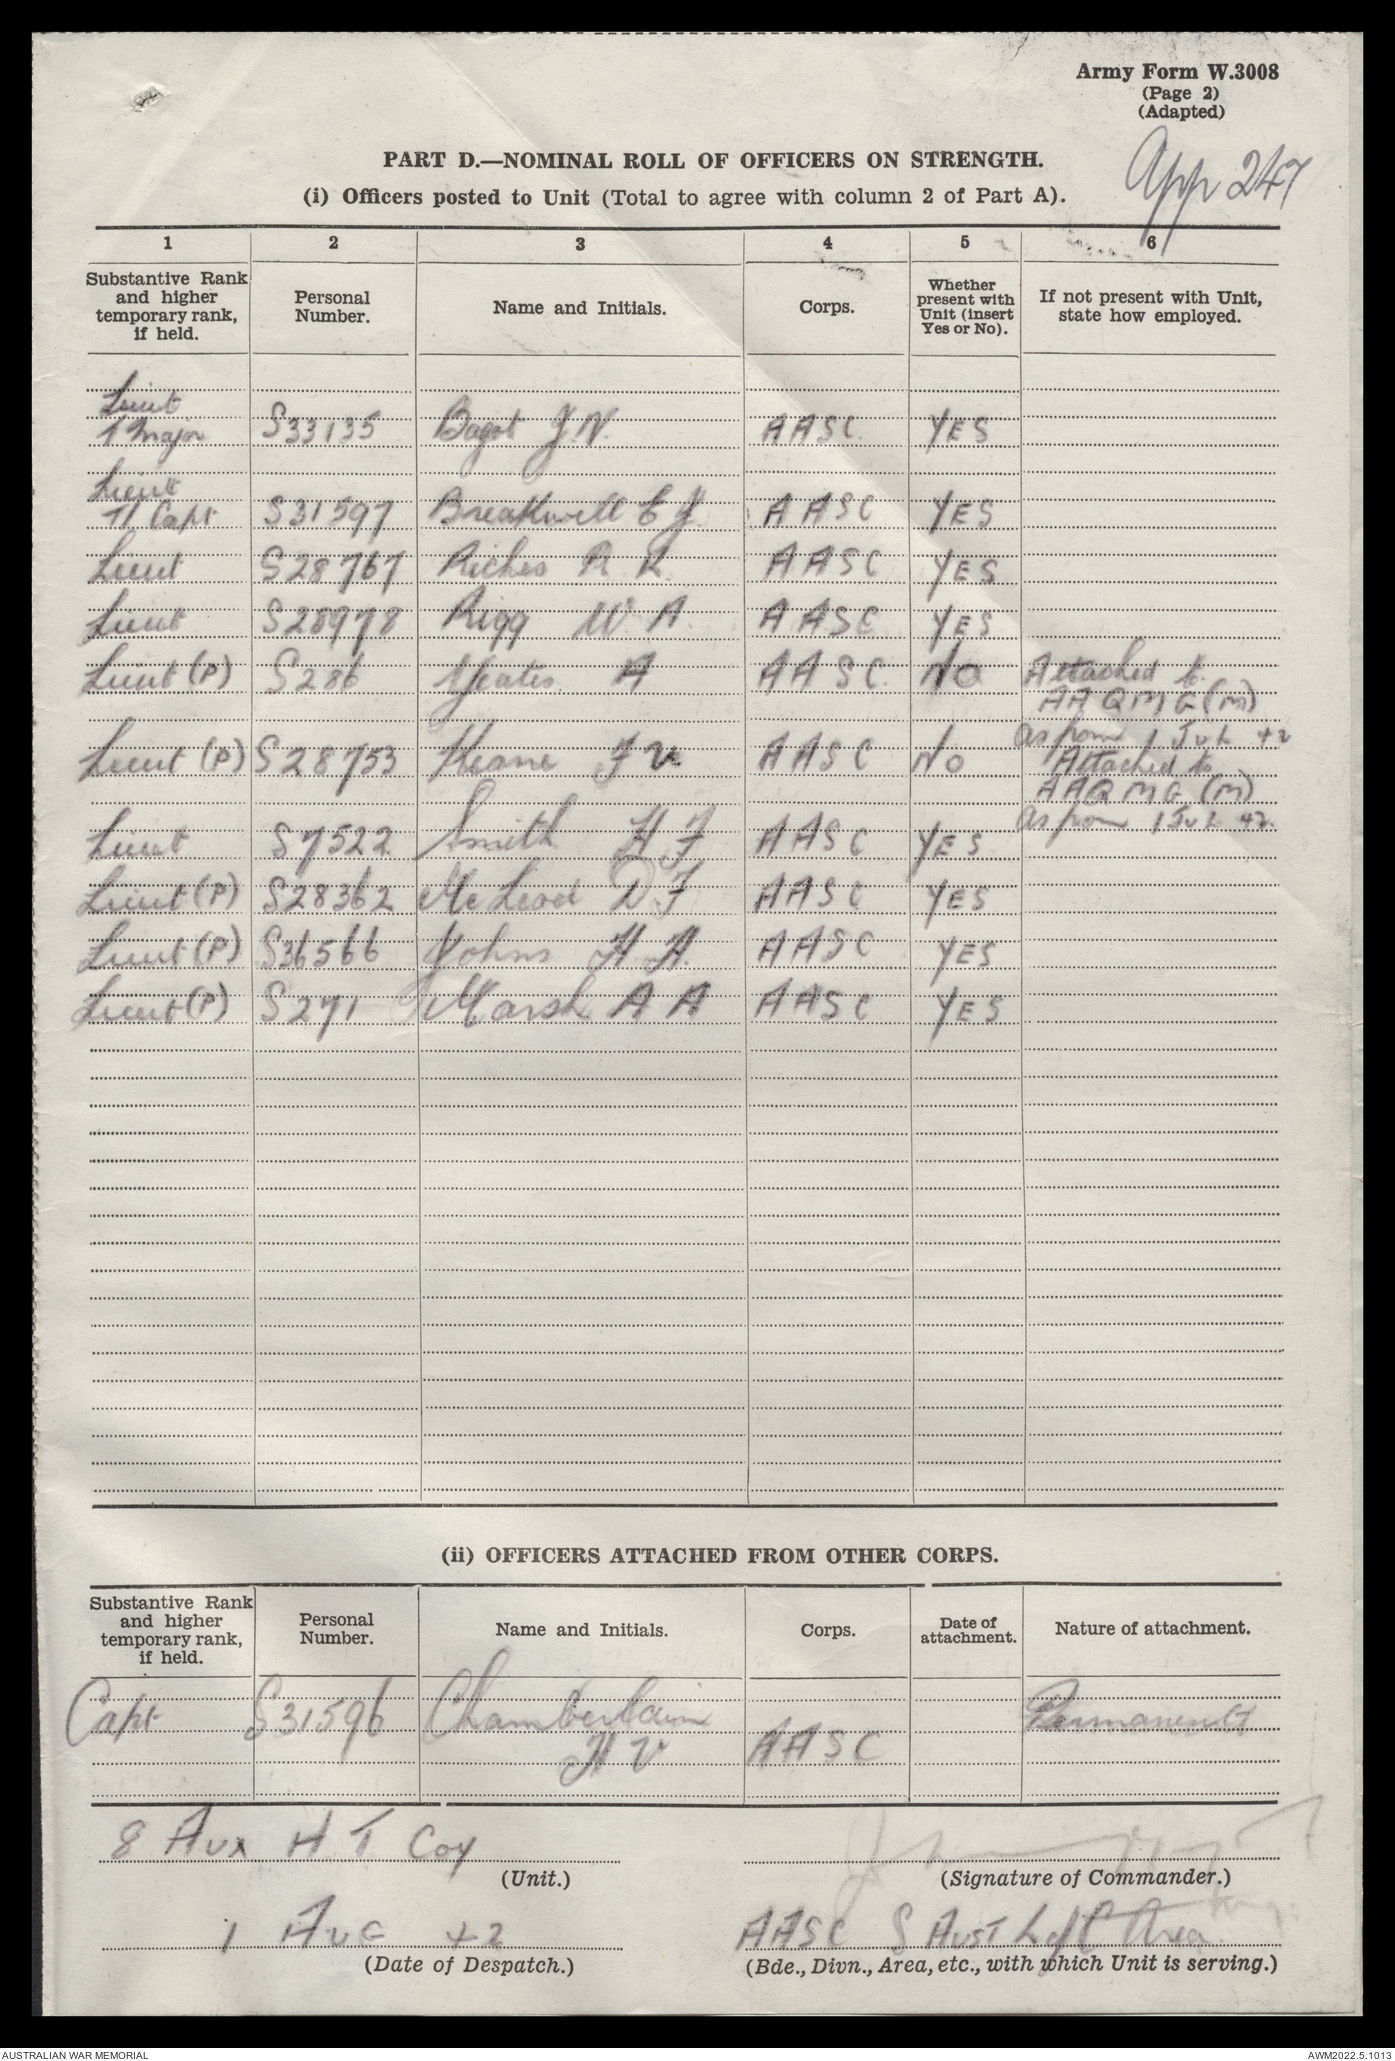 Army Form W.3008
(Page 2)
(Adapted)
App 247
PART D.—NOMINAL ROLL OF OFFICERS ON STRENGTH.
(i) Officers posted to Unit (Total to agree with column 2 of Part A).
1 2 3 4 5 6
Substantive Rank and higher temporary rank, if held. Personal Number. Name and Initials. Corps. Whether present with Unit (insert Yes or No). If not present with Unit, state how employed.
Lieut
T/Major S33135 Bagot J.N. AASC. YES
Lieut
T/ Capt S31597 Breakwell E J AASC YES
Lieut S28767 Riches R L AASC YES
Lieut S28978 Rigg W A. AASC YES
Lieut (P) S286 Yeates A AASC. No Attached to
AAQMG (M)
as from 1 JUL 42
Lieut (P) S28753 Keane F V. AASC No Attached to
AAQMG (M)
as from 1 JUL 42.
Lieut S7522 Smith H F AASC YES
Lieut (P) S28362 McLeod D.F AASC YES
Lieut (P) S36566 Johns H A. AASC YES
Lieut (P) S271 Marsh A A AASC YES
(ii) OFFICERS ATTACHED FROM OTHER CORPS.
Substantive Rank and higher temporary rank, if held. Personal Number. Name and Initials. Corps. Date of attachment. Nature of attachment.
Capt S31596 Chamberlain Permanent
H V AASC
8 Aux H T Coy
(Unit.) (Signature of Commander.)
1 AUG 42 AASC S AUST L of C Area
(Date of Despatch.) (Bde., Divn., Area, etc., with which Unit is serving.)
AUSTRALIAN WAR MEMORIAL AWM2022.5.1013